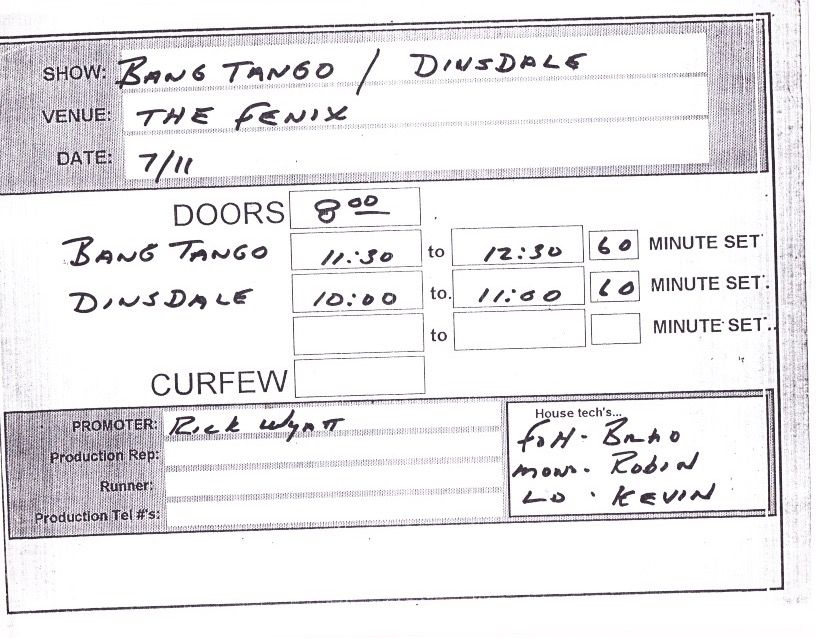 SHOW: BANG TANGO / DINSDALE
VENUE: THE FENIX
DATE: 7/11
DOORS 8 00
BANG TANGO 11:30 to 12:30 60 MINUTE SET
DINSDALE 10:00 to. 11:00 60 MINUTE SET.
to MINUTE SET..
CURFEW
PROMOTER: RICK WYATT
Production Rep:
Runner:
Production Tel #'s:
House tech's...
FOH - BRAD
MONS - ROBIN
LD - KEVIN